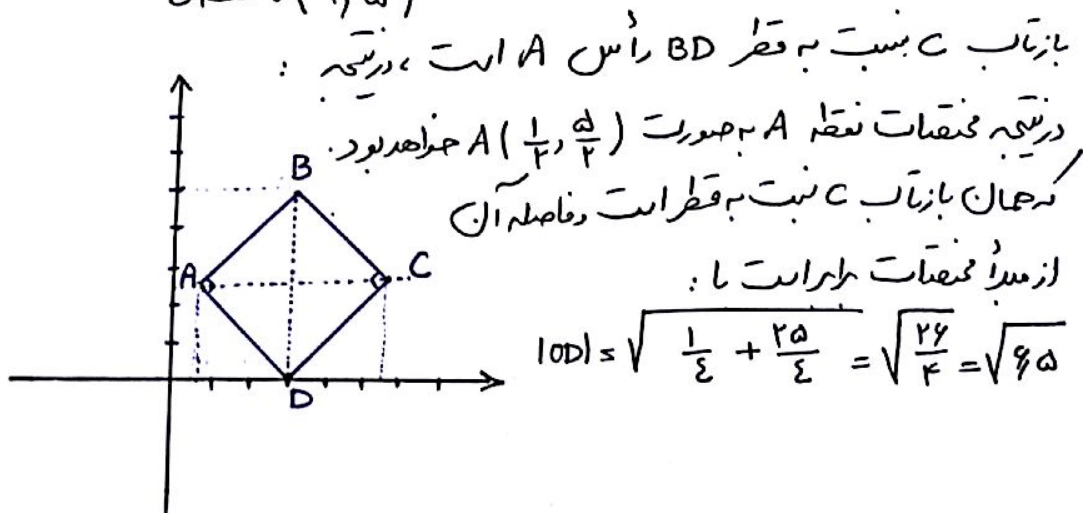 بازتاب C نسبت به قطر BD رأس A است، درنتیجه :
درنتیجه مختصات نقطه A به صورت A(۱/۲, ۵/۲) خواهد بود.
که همان بازتاب C نسبت به قطر است و فاصله آن
از مبدأ مختصات برابر است با :
|OD| = √(۱/۴ + ۲۵/۴) = √(۲۶/۴) = √۶٫۵
B
A
C
D